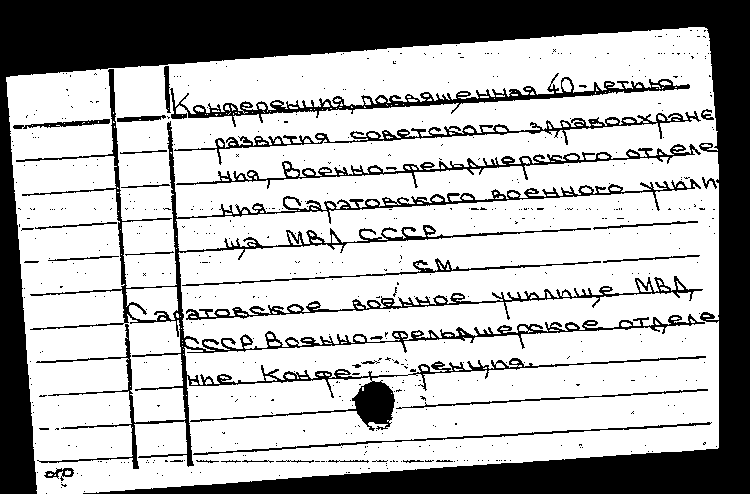 Конференция, посвященная 40-летию
развития советского здравоохране
ния, Военно-фельдшерского отделе
ния Саратовского военного учили
ща МВД СССР.
см.
Саратовское военное училище МВД
СССР. Военно-фельдшерское отделе
ние. Конфе- ренция.